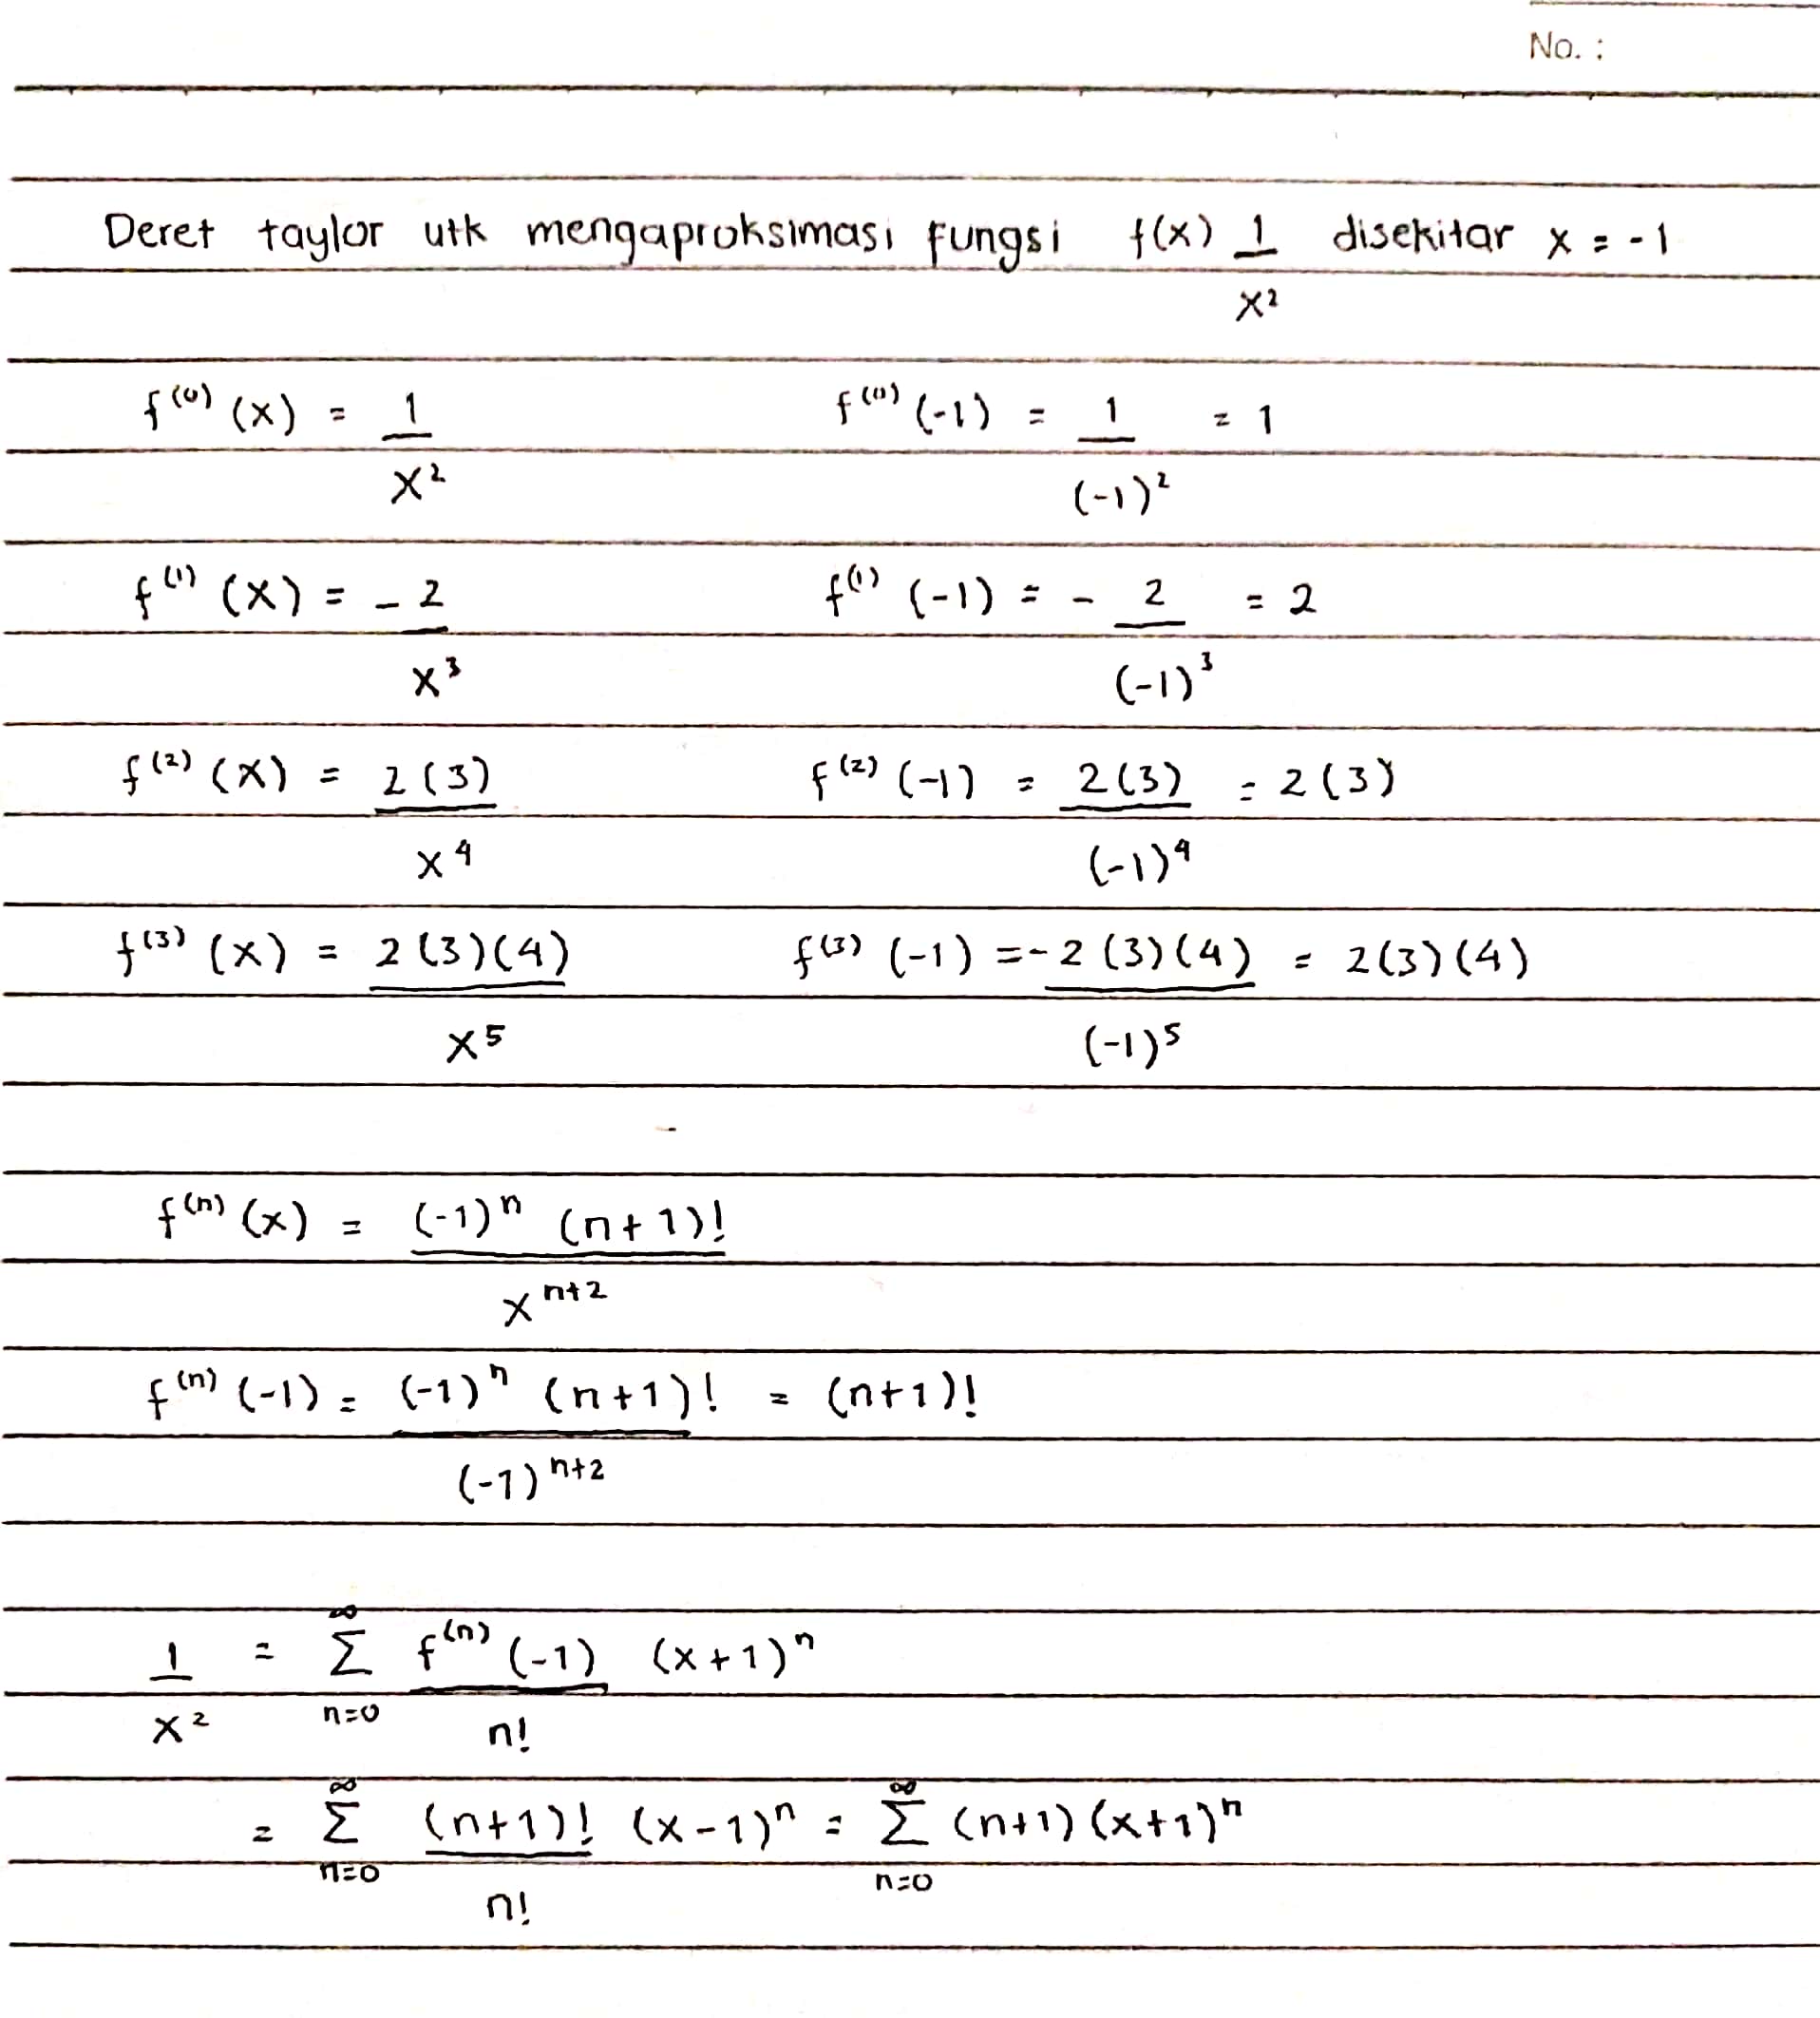 No. :
Deret taylor utk mengaproksimasi fungsi f(x) 1/x² disekitar x = -1
f⁽⁰⁾(x) = 1/x² f⁽⁰⁾(-1) = 1/(-1)² = 1
f⁽¹⁾(x) = - 2/x³ f⁽¹⁾(-1) = - 2/(-1)³ = 2
f⁽²⁾(x) = 2(3)/x⁴ f⁽²⁾(-1) = 2(3)/(-1)⁴ = 2(3)
f⁽³⁾(x) = 2(3)(4)/x⁵ f⁽³⁾(-1) = -2(3)(4)/(-1)⁵ = 2(3)(4)
f⁽ⁿ⁾(x) = (-1)ⁿ (n+1)!/xⁿ⁺²
f⁽ⁿ⁾(-1) = (-1)ⁿ (n+1)!/(-1)ⁿ⁺² = (n+1)!
1/x² = ∞ Σ n=0 f⁽ⁿ⁾(-1)/n! (x+1)ⁿ
= ∞ Σ n=0 (n+1)!/n! (x-1)ⁿ = ∞ Σ n=0 (n+1)(x+1)ⁿ